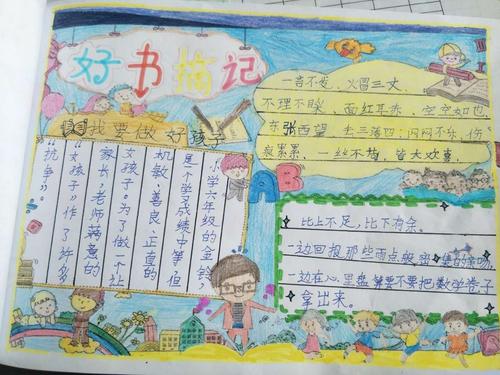 好书摘记
我要做好孩子
小学六年级的金铃，
是一个学习成绩中等，但
机敏、善良、正直的
女孩子。为了做一个让
家长，老师满意的
“女孩子”作了许多
“抗争”。
一言不发，火冒三丈，
不理不睬，面红耳赤，空空如也，
东张西望，丢三落四，闷闷不乐，伤
痕累累，一丝不挂，皆大欢喜，
AB
比上不足，比下有余。
一边回报那些雨点般密集的亲吻，
一边在心里盘算要不要把数学卷子
拿出来。